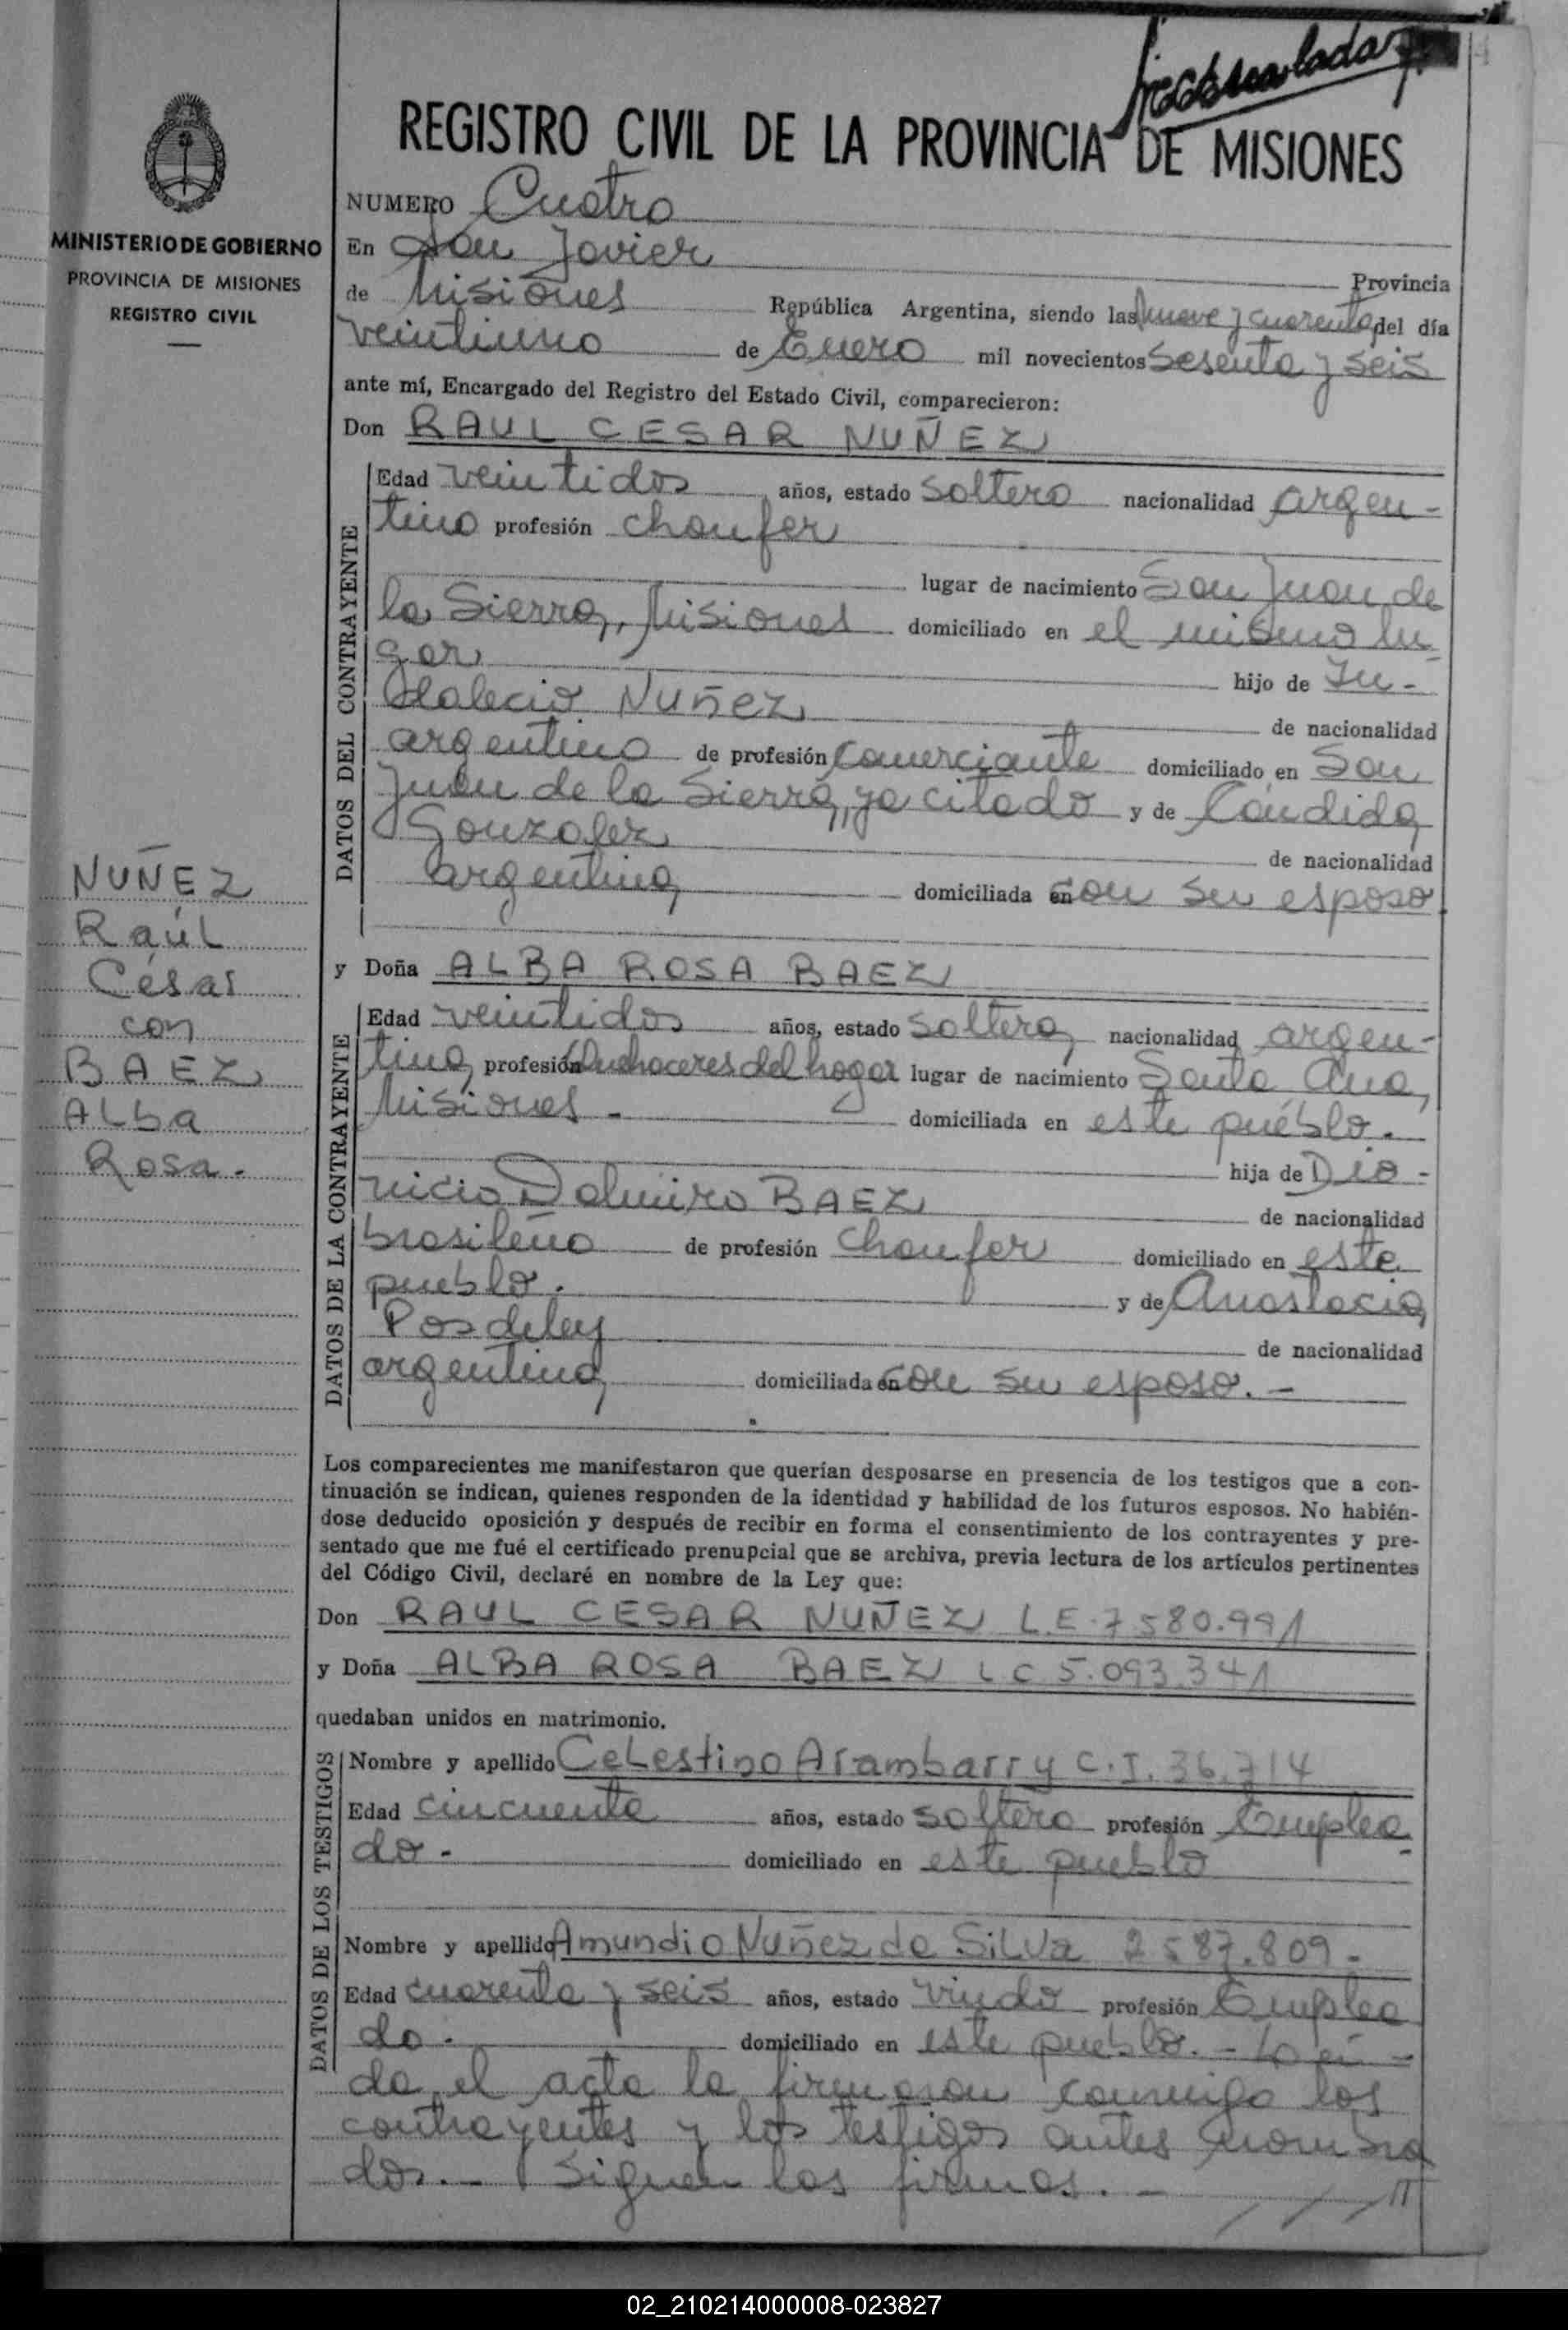 REGISTRO CIVIL DE LA PROVINCIA DE MISIONES
MINISTERIO DE GOBIERNO
PROVINCIA DE MISIONES
REGISTRO CIVIL
NUÑEZ
Raúl
César
con
BAEZ
ALba
Rosa.
NUMERO Cuatro
En San Javier
Provincia
de Misiones República Argentina, siendo las nueve y cuarenta del día
veintiuno de Enero mil novecientos sesenta y seis
ante mí, Encargado del Registro del Estado Civil, comparecieron:
Don RAUL CESAR NUÑEZ
DATOS DEL CONTRAYENTE
Edad veintidos años, estado soltero nacionalidad argen-
tino profesión choufer
lugar de nacimiento San Juan de
la Sierra, Misiones domiciliado en el mismo lu-
gar hijo de In-
dalecio Nuñez de nacionalidad
argentino de profesión comerciante domiciliado en San
Juan de la Sierra, ya citado y de Cándida
Gonzalez de nacionalidad
argentina domiciliada en con su esposo
y Doña ALBA ROSA BAEZ
DATOS DE LA CONTRAYENTE
Edad veintidos años, estado soltera nacionalidad argen-
tina profesión Quehaceres del hogar lugar de nacimiento Santa Ana,
Misiones.- domiciliada en este pueblo.
hija de Dio-
nicio Dalmiro BAEZ de nacionalidad
brasileño de profesión choufer domiciliado en este
pueblo. y de Anastacia
Posdeley de nacionalidad
argentina domiciliada en con su esposo.-
Los comparecientes me manifestaron que querían desposarse en presencia de los testigos que a con-
tinuación se indican, quienes responden de la identidad y habilidad de los futuros esposos. No habién-
dose deducido oposición y después de recibir en forma el consentimiento de los contrayentes y pre-
sentado que me fué el certificado prenupcial que se archiva, previa lectura de los artículos pertinentes
del Código Civil, declaré en nombre de la Ley que:
Don RAUL CESAR NUÑEZ L.E. 7580.991
y Doña ALBA ROSA BAEZ LC 5.093.341
quedaban unidos en matrimonio.
DATOS DE LOS TESTIGOS
Nombre y apellido CeLestino Arambarry C.I. 36.714
Edad cincuenta años, estado soltero profesión Emplea-
do.- domiciliado en este pueblo
Nombre y apellido Amundio Nuñez da SiLva 2587.809-
Edad cuarenta y seis años, estado viudo profesión Emplea
do.- domiciliado en este pueblo.- Leí-
da el acta la firmaron conmigo los
contrayentes y los testigos antes nombra
dos.- Siguen las firmas.-
02_210214000008-023827